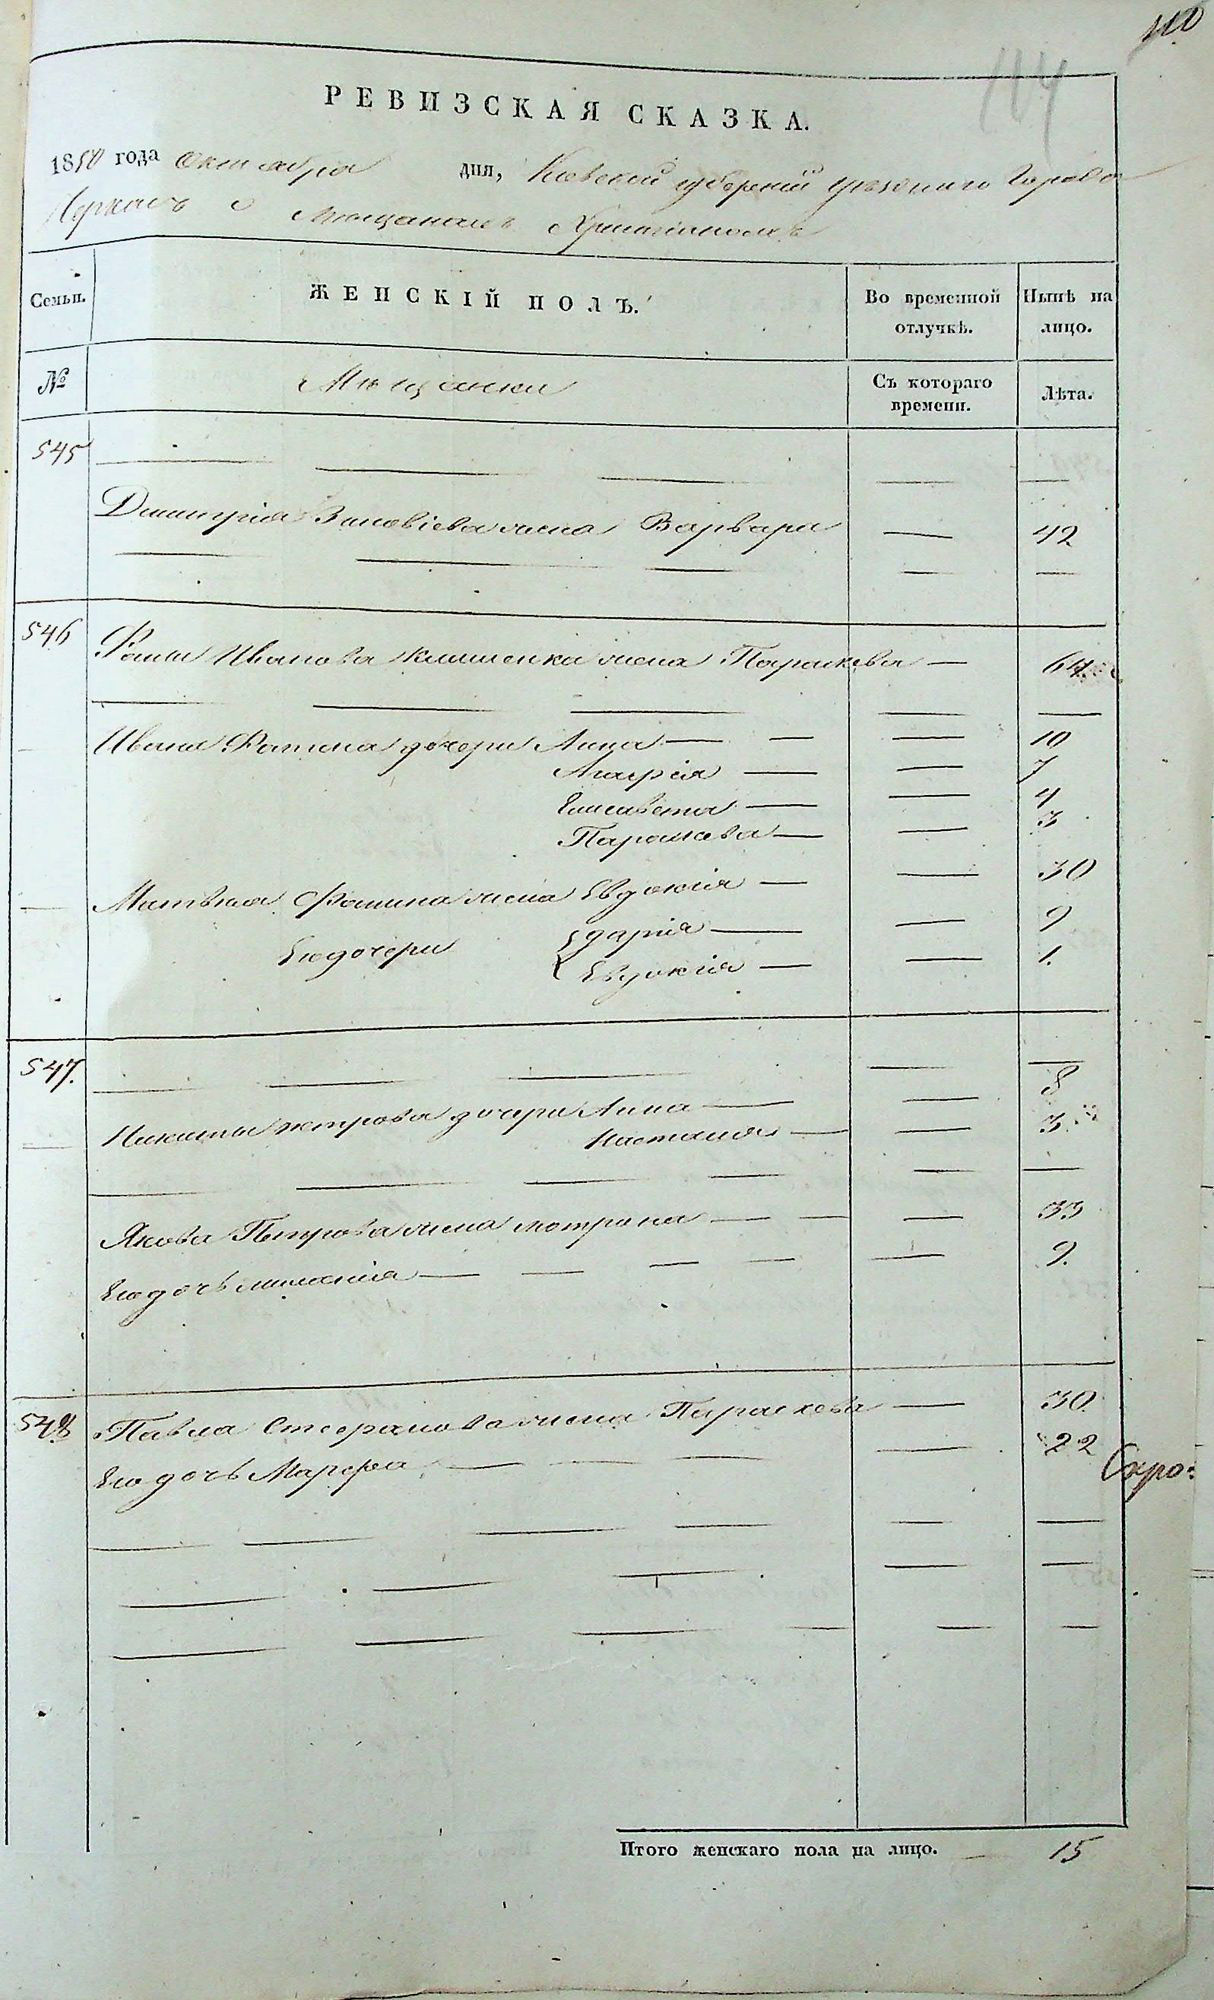 110
114
РЕВИЗСКАЯ СКАЗКА.
1850 года Октября дня, Киевской губерніи уезднаго Города
Черкасъ о Мещанахъ Христіянахъ
Семьи. ЖЕНСКІЙ ПОЛЪ. Во временной отлучкѣ. Нынѣ на лицо.
№ Мещанки Съ котораго времени. Лѣта.
545
Димитрія Зиновіева жена Варвара — 42
546 Фомы Иванова Клименка жена Параскева — 64
Ивана Фомина дочери Анна — 10
Агафія — 7
Елисавета — 4
Параскева — 3
Матвѣя Фомина жена Евдокія — 30
Его дочери Дарія — 9
Евдокія — 1.
547.
Никиты петрова дочери Анна — 8
Настасія — 3
Якова Петрова жена мотрона — 33
Его дочь миланія — 9.
548 Павла Стефанова жена Параскева — 30
Его дочь Марфа — 22
Скро:
Итого женскаго пола на лицо. — 15